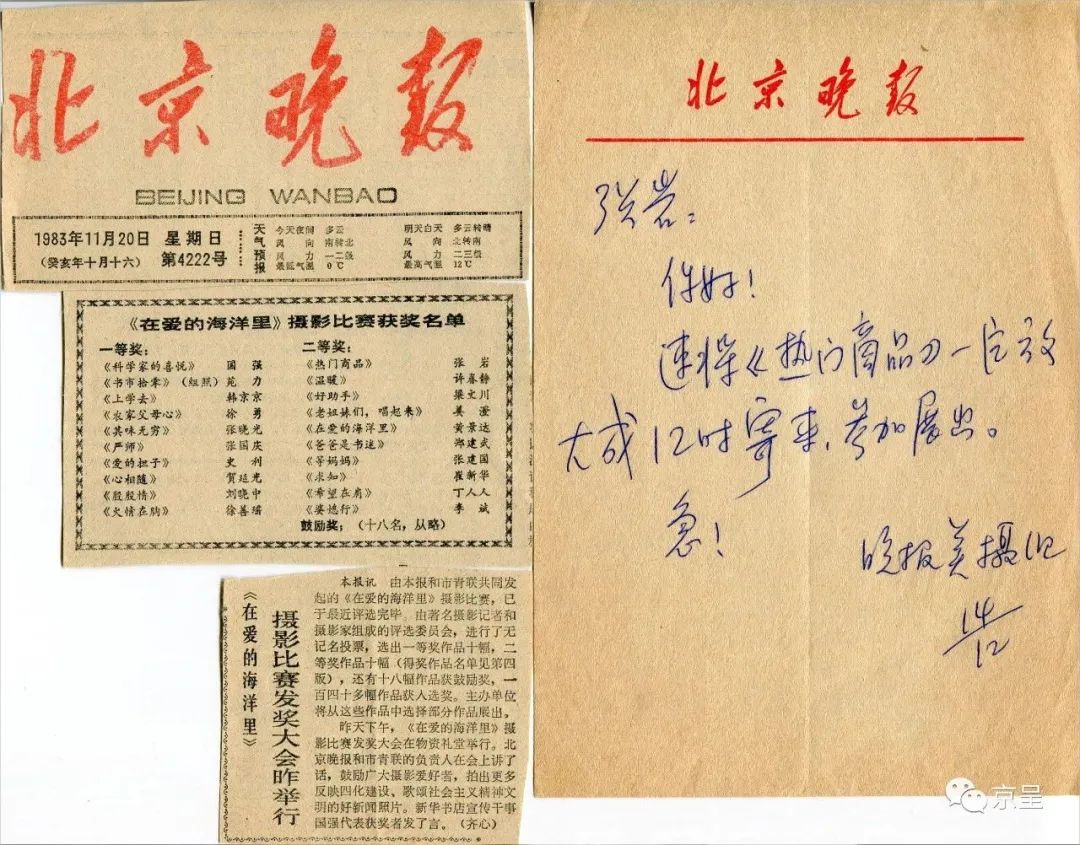 北京晚报
BEIJING WANBAO
1983年11月20日 星期日
(癸亥年十月十六) 第4222号
天气预报
今天夜间 多云
风向 南转北
风力 一二级
最低气温 0℃
明天白天 多云转晴
风向 北转南
风力 二三级
最高气温 12℃
《在爱的海洋里》摄影比赛获奖名单
一等奖：
《科学家的喜悦》 国强
《书市拾零》(组照) 苑力
《上学去》 韩京京
《农家父母心》 徐勇
《其味无穷》 张晓光
《严师》 张国庆
《爱的担子》 史利
《心相随》 贺延光
《殷殷情》 刘晓中
《火情在胸》 徐善瑶
二等奖：
《热门商品》 张岩
《温暖》 许春静
《好助手》 梁文川
《老姐妹们，唱起来》 姜澄
《在爱的海洋里》 黄景达
《爸爸是书迷》 郑建武
《等妈妈》 张建国
《求知》 崔新华
《希望在肩》 丁人人
《婆媳行》 李斌
鼓励奖：(十八名，从略)
《在爱的海洋里》
摄影比赛发奖大会昨举行
本报讯 由本报和市青联共同发
起的《在爱的海洋里》摄影比赛，已
于最近评选完毕。由著名摄影记者和
摄影家组成的评选委员会，进行了无
记名投票，选出一等奖作品十幅，二
等奖作品十幅（得奖作品名单见第四
版），还有十八幅作品获鼓励奖，一
百四十多幅作品获入选奖。主办单位
将从这些作品中选择部分作品展出。
昨天下午，《在爱的海洋里》摄
影比赛发奖大会在物资礼堂举行。北
京晚报和市青联的负责人在会上讲了
话，鼓励广大摄影爱好者，拍出更多
反映四化建设、歌颂社会主义精神文
明的好新闻照片。新华书店宣传干事
国强代表获奖者发了言。（齐心）
北京晚报
张岩：
你好！
速将《热门商品》一定放
大成12时寄来，参加展出。
急！
晚报美摄组
14/12
京呈